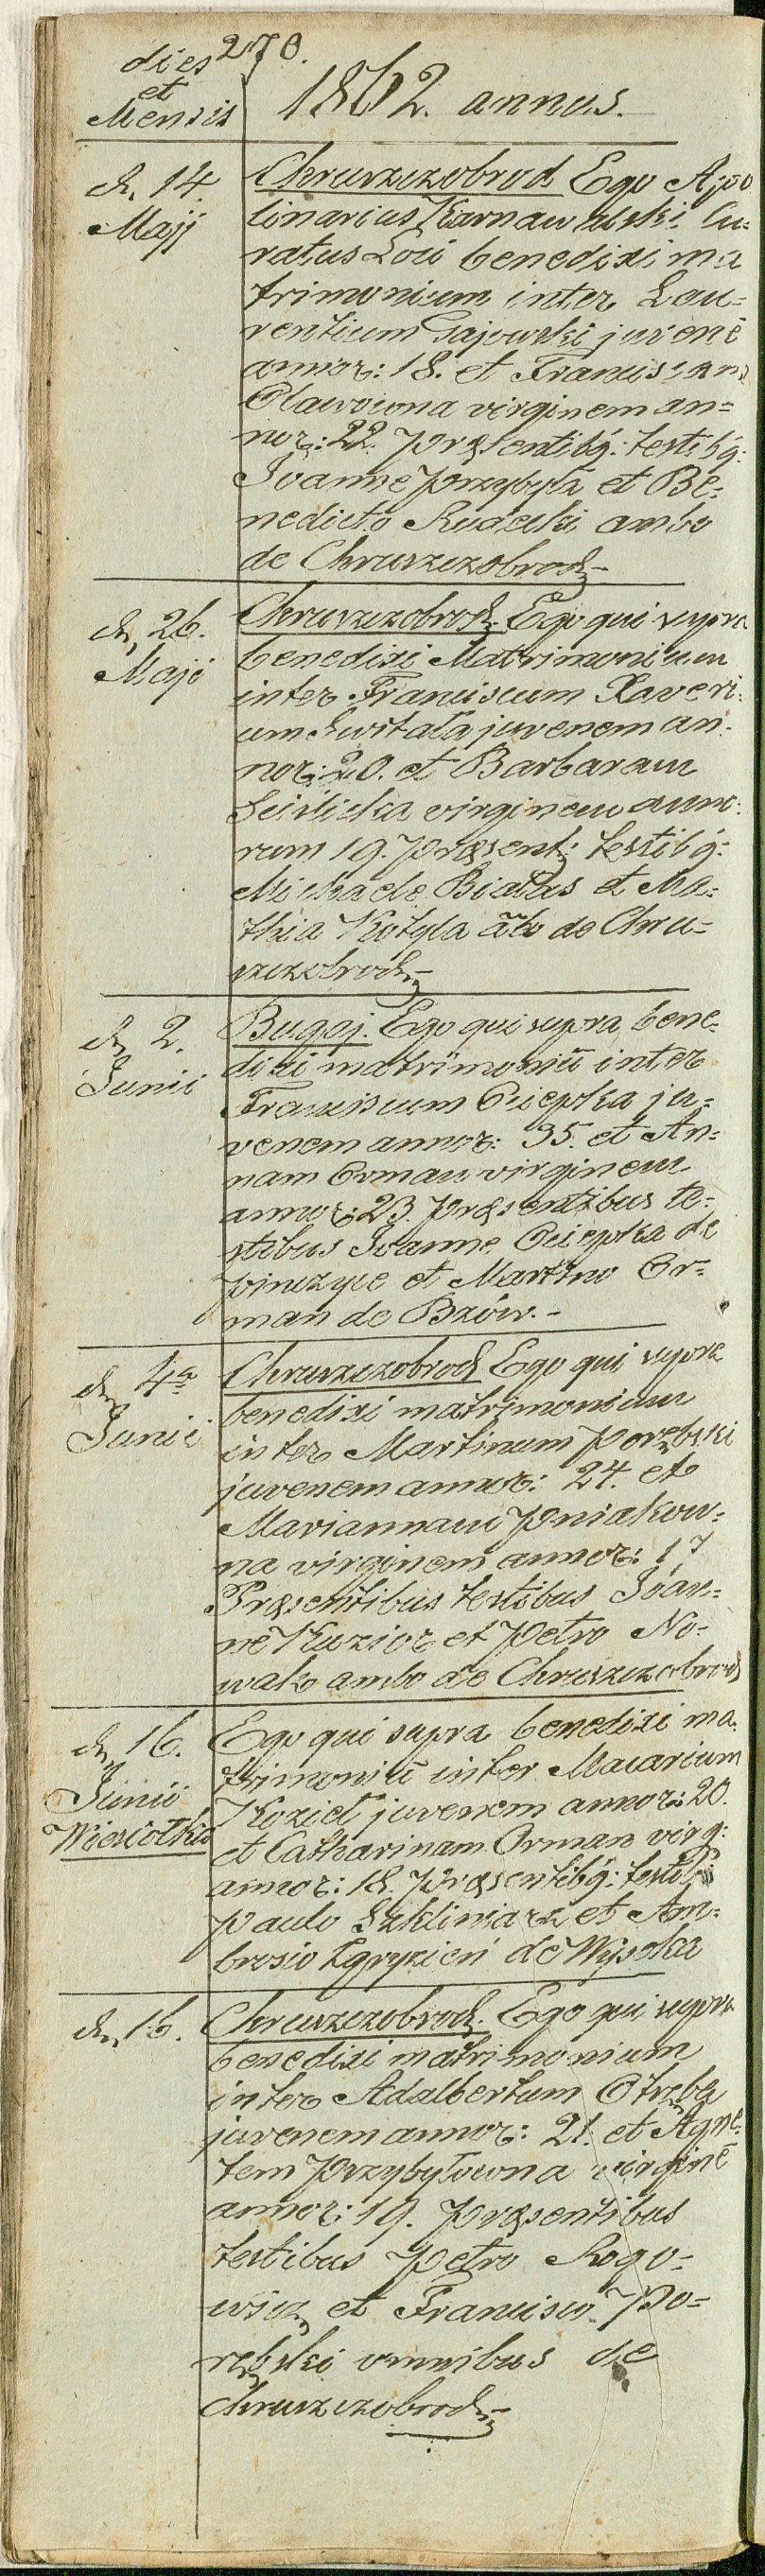 dies 270.
et
Mensis 1862. annus.
d. 14. Chruszczobrod Ego Apo
Maji linarius Karnawalski Cu=
ratus Loci benedixi ma
trimonium inter Lau=
rentium Gajowski juvenē
annor: 18. et Franciscam
virginem an=
nor: 22. pręsentibq: testibq:
Joanne Przybyła et Be=
nedicto Rudecki ambo
de Chruszczobrod
d. 26. Chruszczobrod. Ego qui supra
Maji benedixi Matrimonium
inter Franciscum Xaveri=
um Kwitała juvenem an=
nor: 20. et Barbaram
virginem anno:
rum 19. pręsent: testibq:
Michaele Białas et Ma=
thia Kotyla ābo de Chru=
szczobrod
d. 2. Bugaj. Ego qui supra bene=
Junii dixi matrimoniū inter
Franciscum Ciepka ju=
venem annor: 35. et An=
nam Orman virginem
annor: 23. pręsentibus te=
stibus Joanne Ciepka de
Pinczyce et Martino Or=
man de Bzów. -
d. 4ª Chruszczobrod Ego qui supra
Junii benedixi matrimonium
inter Martinum Porębski
juvenem annor: 24. et
Mariannam Pniakow=
na virginem annor: 17
Pręsentibus testibus Joan=
ne Kuzior et Petro No=
wak ambo de Chruszczobrod
d. 16. Ego qui supra benedixi ma=
Junii trimoniū inter Macarium
Wiesiołka Kozieł juvenem annor: 20.
et Catharinam Orman virg:
annor: 18. pręsentibq: testib
Paulo Szkliniarz et Am=
brosio Zgryzień de Wysoka
d. 16. Chruszczobrod. Ego qui supra
benedixi matrimonium
inter Adalbertum Otrzba
juvenem annor: 21. et Agne=
tem Przybyłowna virginē
annor: 19. pręsentibus
testibus Petro Rogo=
wicz et Francisco Po=
rębski omnibus de
Chruszczobrod